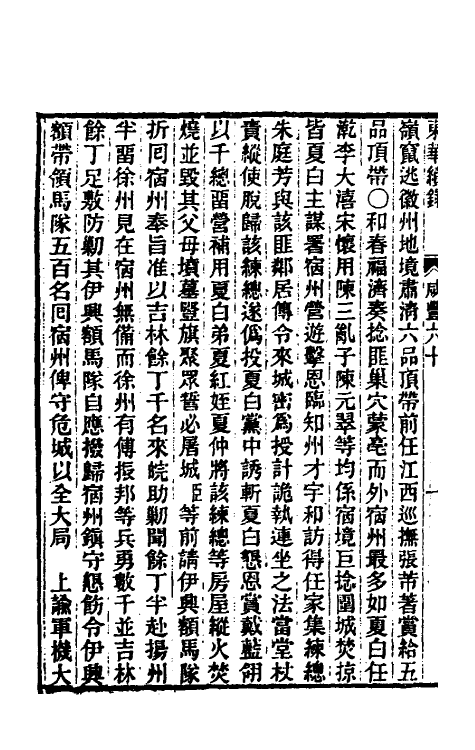 東華續錄 咸豐六十
嶺竄逃徽州地境肅清六品頂帶前任江西巡撫張芾著賞給五
品頂帶〇和春福濟奏捻匪巢穴蒙亳而外宿州最多如夏白任
乾李大漋宋懷用陳三亂子陳元翠等均係宿境巨捻圍城焚掠
皆夏白主謀署宿州營遊擊恩臨知州才宇和訪得任家集練總
朱庭芳與該匪鄰居傳令來城密為授計詭執連坐之法當堂杖
責縱使脫歸該練總遂偽投夏白黨中誘斬夏白懇恩賞戴藍翎
以千總留營補用夏白弟夏紅姪夏仲將該練總等房屋縱火焚
燒並毀其父母墳墓豎旗聚眾誓必屠城臣等前請伊興額馬隊
折回宿州奉旨准以吉林餘丁千名來皖助勦聞餘丁半赴揚州
半留徐州見在宿州無備而徐州有傅振邦等兵勇數千並吉林
餘丁足敷防勦其伊興額馬隊自應撥歸宿州鎮守懇飭令伊興
額帶領馬隊五百名回宿州俾守危城以全大局 上諭軍機大